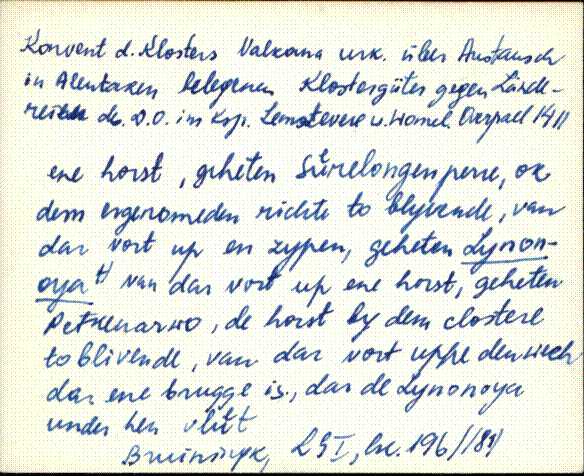 Konvent d. Klosters Valkana urk. über Austausch
in Alentaken belegenen Klostergüter gegen Lände-
reien des D.O. im Ksp. Overpael 1411
ene horst, geheten Surelongenperre, ok
dem ergenomeden richte to blyvende, van
dar vort up en zypen, geheten Lynon-
oya +) van dar vort up ene horst, geheten
Petkenarwo, de horst by dem clostere
to blivende, van dar vort uppe den wech
dar ene brugge is, dar de Lynonoya
under hen vlut
Bruiningk, LGI, No. 196 /181